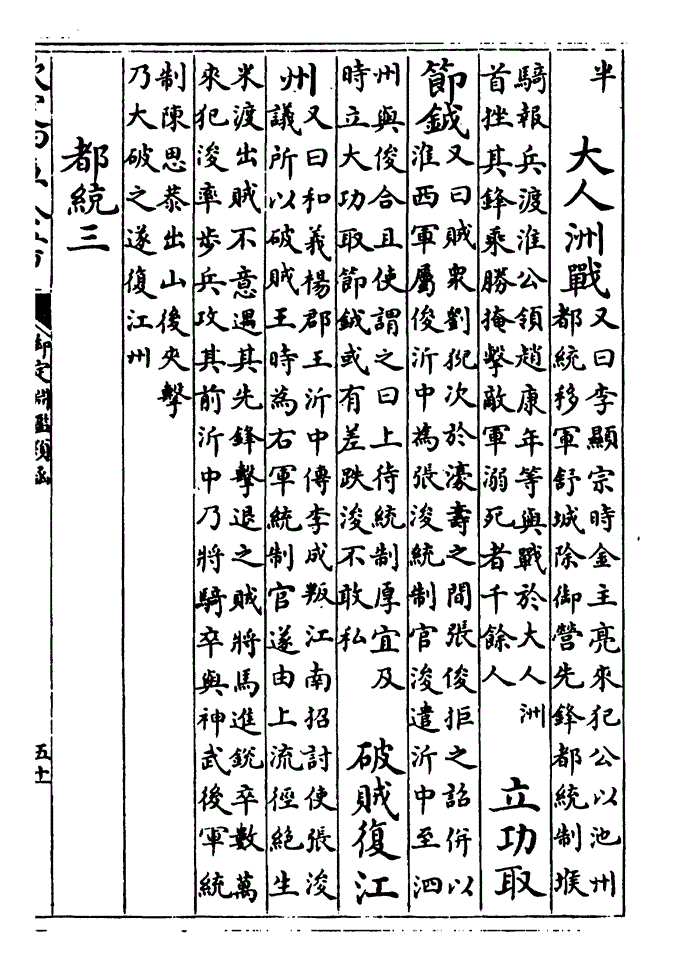 半
大人洲戰
又曰李顯宗時金主亮來犯公以池州
都統移軍舒城除御營先鋒都統制堠
騎報兵渡淮公領趙康年等與戰於大人洲
首挫其鋒乘勝掩擊敵軍溺死者千餘人
立功取
節鉞
又曰賊衆劉猊次於濠壽之間張俊拒之詔併以
淮西軍屬俊沂中為張浚統制官浚遣沂中至泗
州與俊合且使謂之曰上待統制厚宜及
時立大功取節鉞或有差跌浚不敢私
破賊復江
州
又曰和義楊郡王沂中傳李成叛江南招討使張浚
議所以破賊王時為右軍統制官遂由上流徑絶生
米渡出賊不意遇其先鋒擊退之賊將馬進銳卒數萬
來犯浚率步兵攻其前沂中乃將騎卒與神武後軍統
制陳思恭出山後夾擊
乃大破之遂復江州
都統三
欽定四庫全書
御定淵鑑類函
五十